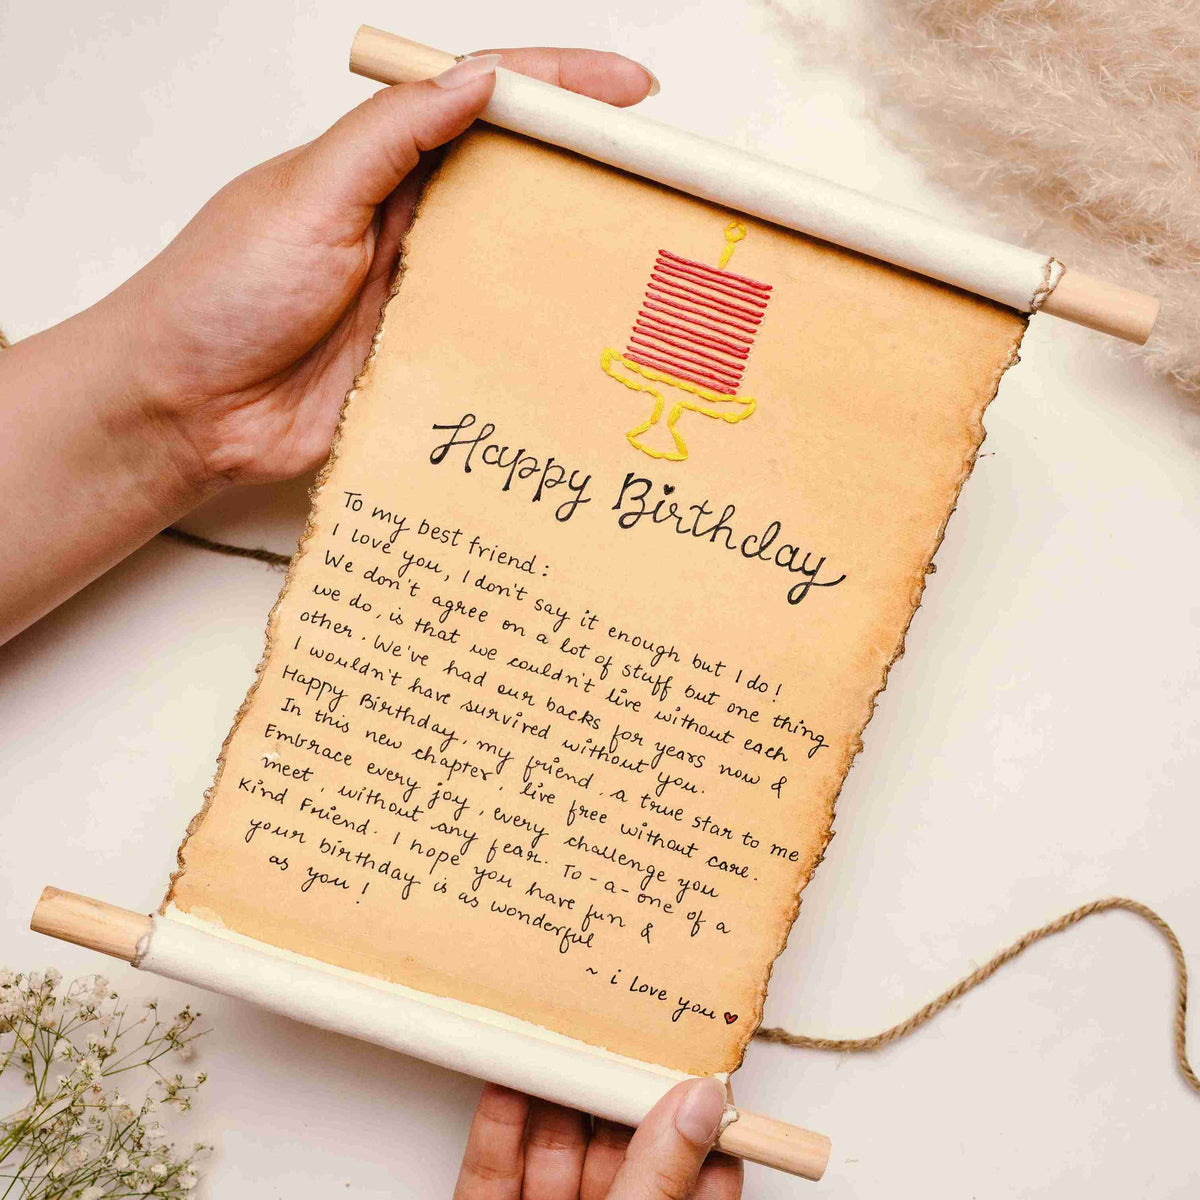 Happy Birthday
To my best friend :
I love you, I don't say it enough but I do !
We don't agree on a lot of stuff but one thing
we do, is that we couldn't live without each
other. We've had our backs for years now &
I wouldn't have survived without you.
Happy Birthday, my friend, a true star to me
In this new chapter, live free without care.
Embrace every joy, every challenge you
meet, without any fear. To-a-one of a
Kind Friend. I hope you have fun &
your birthday is as wonderful
as you !
~ i love you